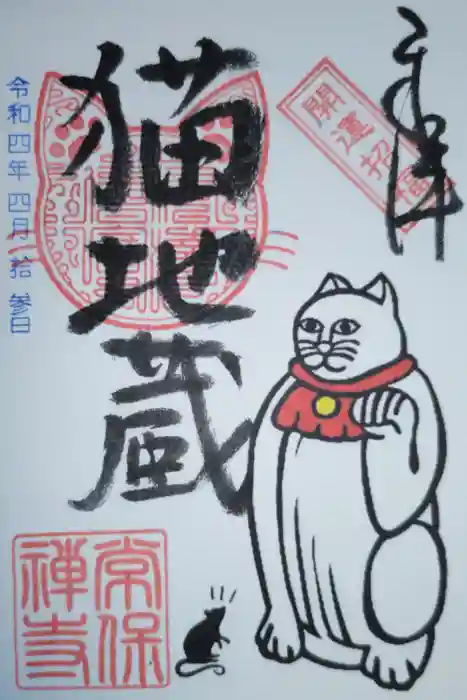 奉拝
開運招福
猫地蔵
令和四年 四月 拾 参日
常保
禅寺